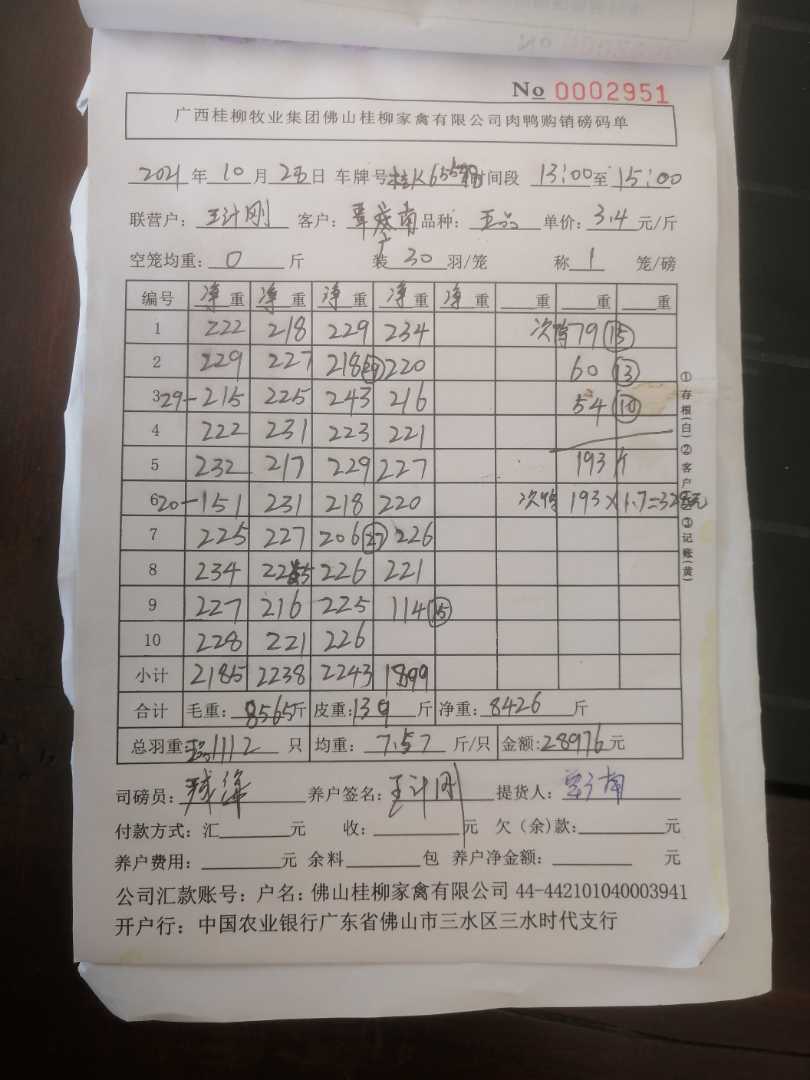 No 0002951
广西桂柳牧业集团佛山桂柳家禽有限公司肉鸭购销磅码单
2021年10月25日 车牌号 时间段 13:00至15:00
联营户:王计刚 客户: 南 品种: 品 单价:3.4元/斤
空笼均重:0斤 装30羽/笼 称1笼/磅
编号 净重 净重 净重 净重 净重 重 重 重
1 222 218 229 234 次鸭 79 ⑮
2 229 227 218 220 60 ⑬
3 29-215 225 243 216 54 ⑩
4 222 231 223 221
5 232 217 229 227 193斤
6 20-151 231 218 220 次鸭 193×1.7=328元
7 225 227 206 ㉗ 226
8 234 225 226 221
9 227 216 225 114 ⑮
10 228 221 226
小计 2185 2238 2243 1899
合计 毛重:8565斤 皮重:139斤 净重:8426斤
总羽重: 1112只 均重:7.57斤/只 金额:28976元
司磅员: 养户签名:王计刚 提货人:
付款方式:汇 元 收: 元 欠(余)款: 元
养户费用: 元 余料 包 养户净金额: 元
公司汇款账号:户名:佛山桂柳家禽有限公司 44-442101040003941
开户行:中国农业银行广东省佛山市三水区三水时代支行
①存根(白)②客户 ③记账(黄)